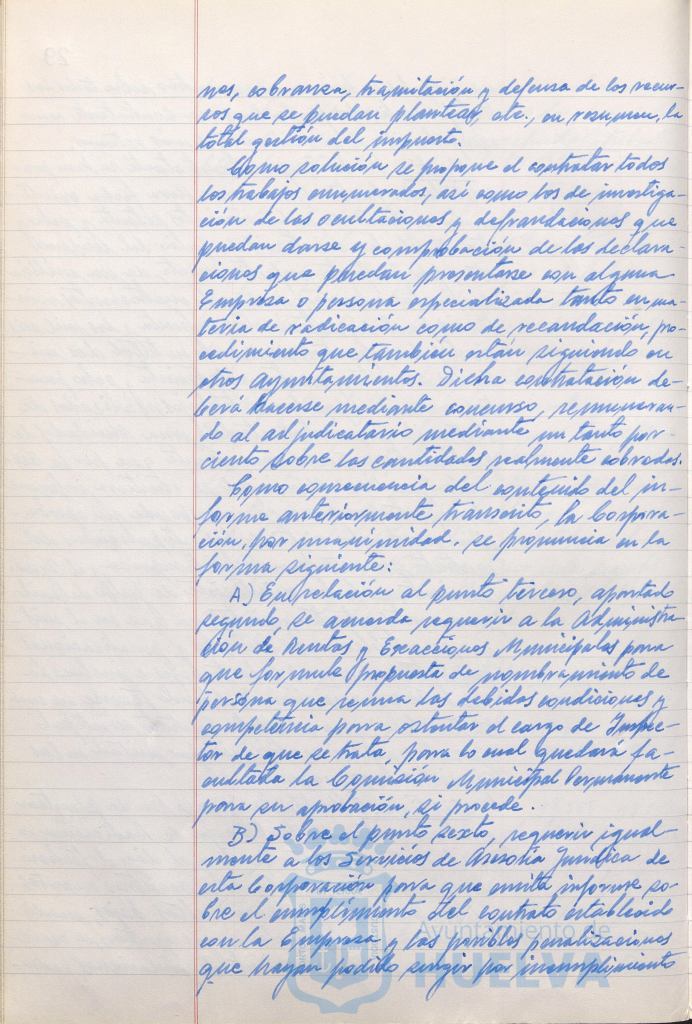 nes, cobranza, tramitación y defensa de los recur-
sos que se puedan plantear, etc., en resumen, la
total gestión del impuesto.
Como solución se propone el contratar todos
los trabajos enumerados, así como los de investiga-
ción de las ocultaciones y defraudaciones que
puedan darse y comprobación de las declara-
ciones que puedan presentarse con alguna
Empresa o persona especializada tanto en ma-
teria de radicación como de recaudación, pro-
cedimiento que también están siguiendo en
otros Ayuntamientos. Dicha contratación de-
berá hacerse mediante concurso, remuneran-
do al adjudicatario mediante un tanto por
ciento sobre las cantidades realmente cobradas.
Como consecuencia del contenido del in-
forme anteriormente transcrito, la Corpora-
ción, por unanimidad, se pronuncia en la
forma siguiente:
A) En relación al punto tercero, apartado
segundo, se acuerda requerir a la Administra
ción de Rentas y Exacciones Municipales para
que formule propuesta de nombramiento de
persona que reuna las debidas condiciones y
competencia para ostentar el cargo de Inspec-
tor de que se trata, para lo cual quedará fa-
cultada la Comisión Municipal Permanente
para su aprobación, si procede.
B) Sobre el punto sexto, requerir igual-
mente a los Servicios de Asesoría Jurídica de
esta Corporación para que emita informe so-
bre el cumplimiento del contrato establecido
con la Empresa y las posibles penalizaciones
que hayan podido surgir por incumplimiento
Ayuntamiento de
HUELVA